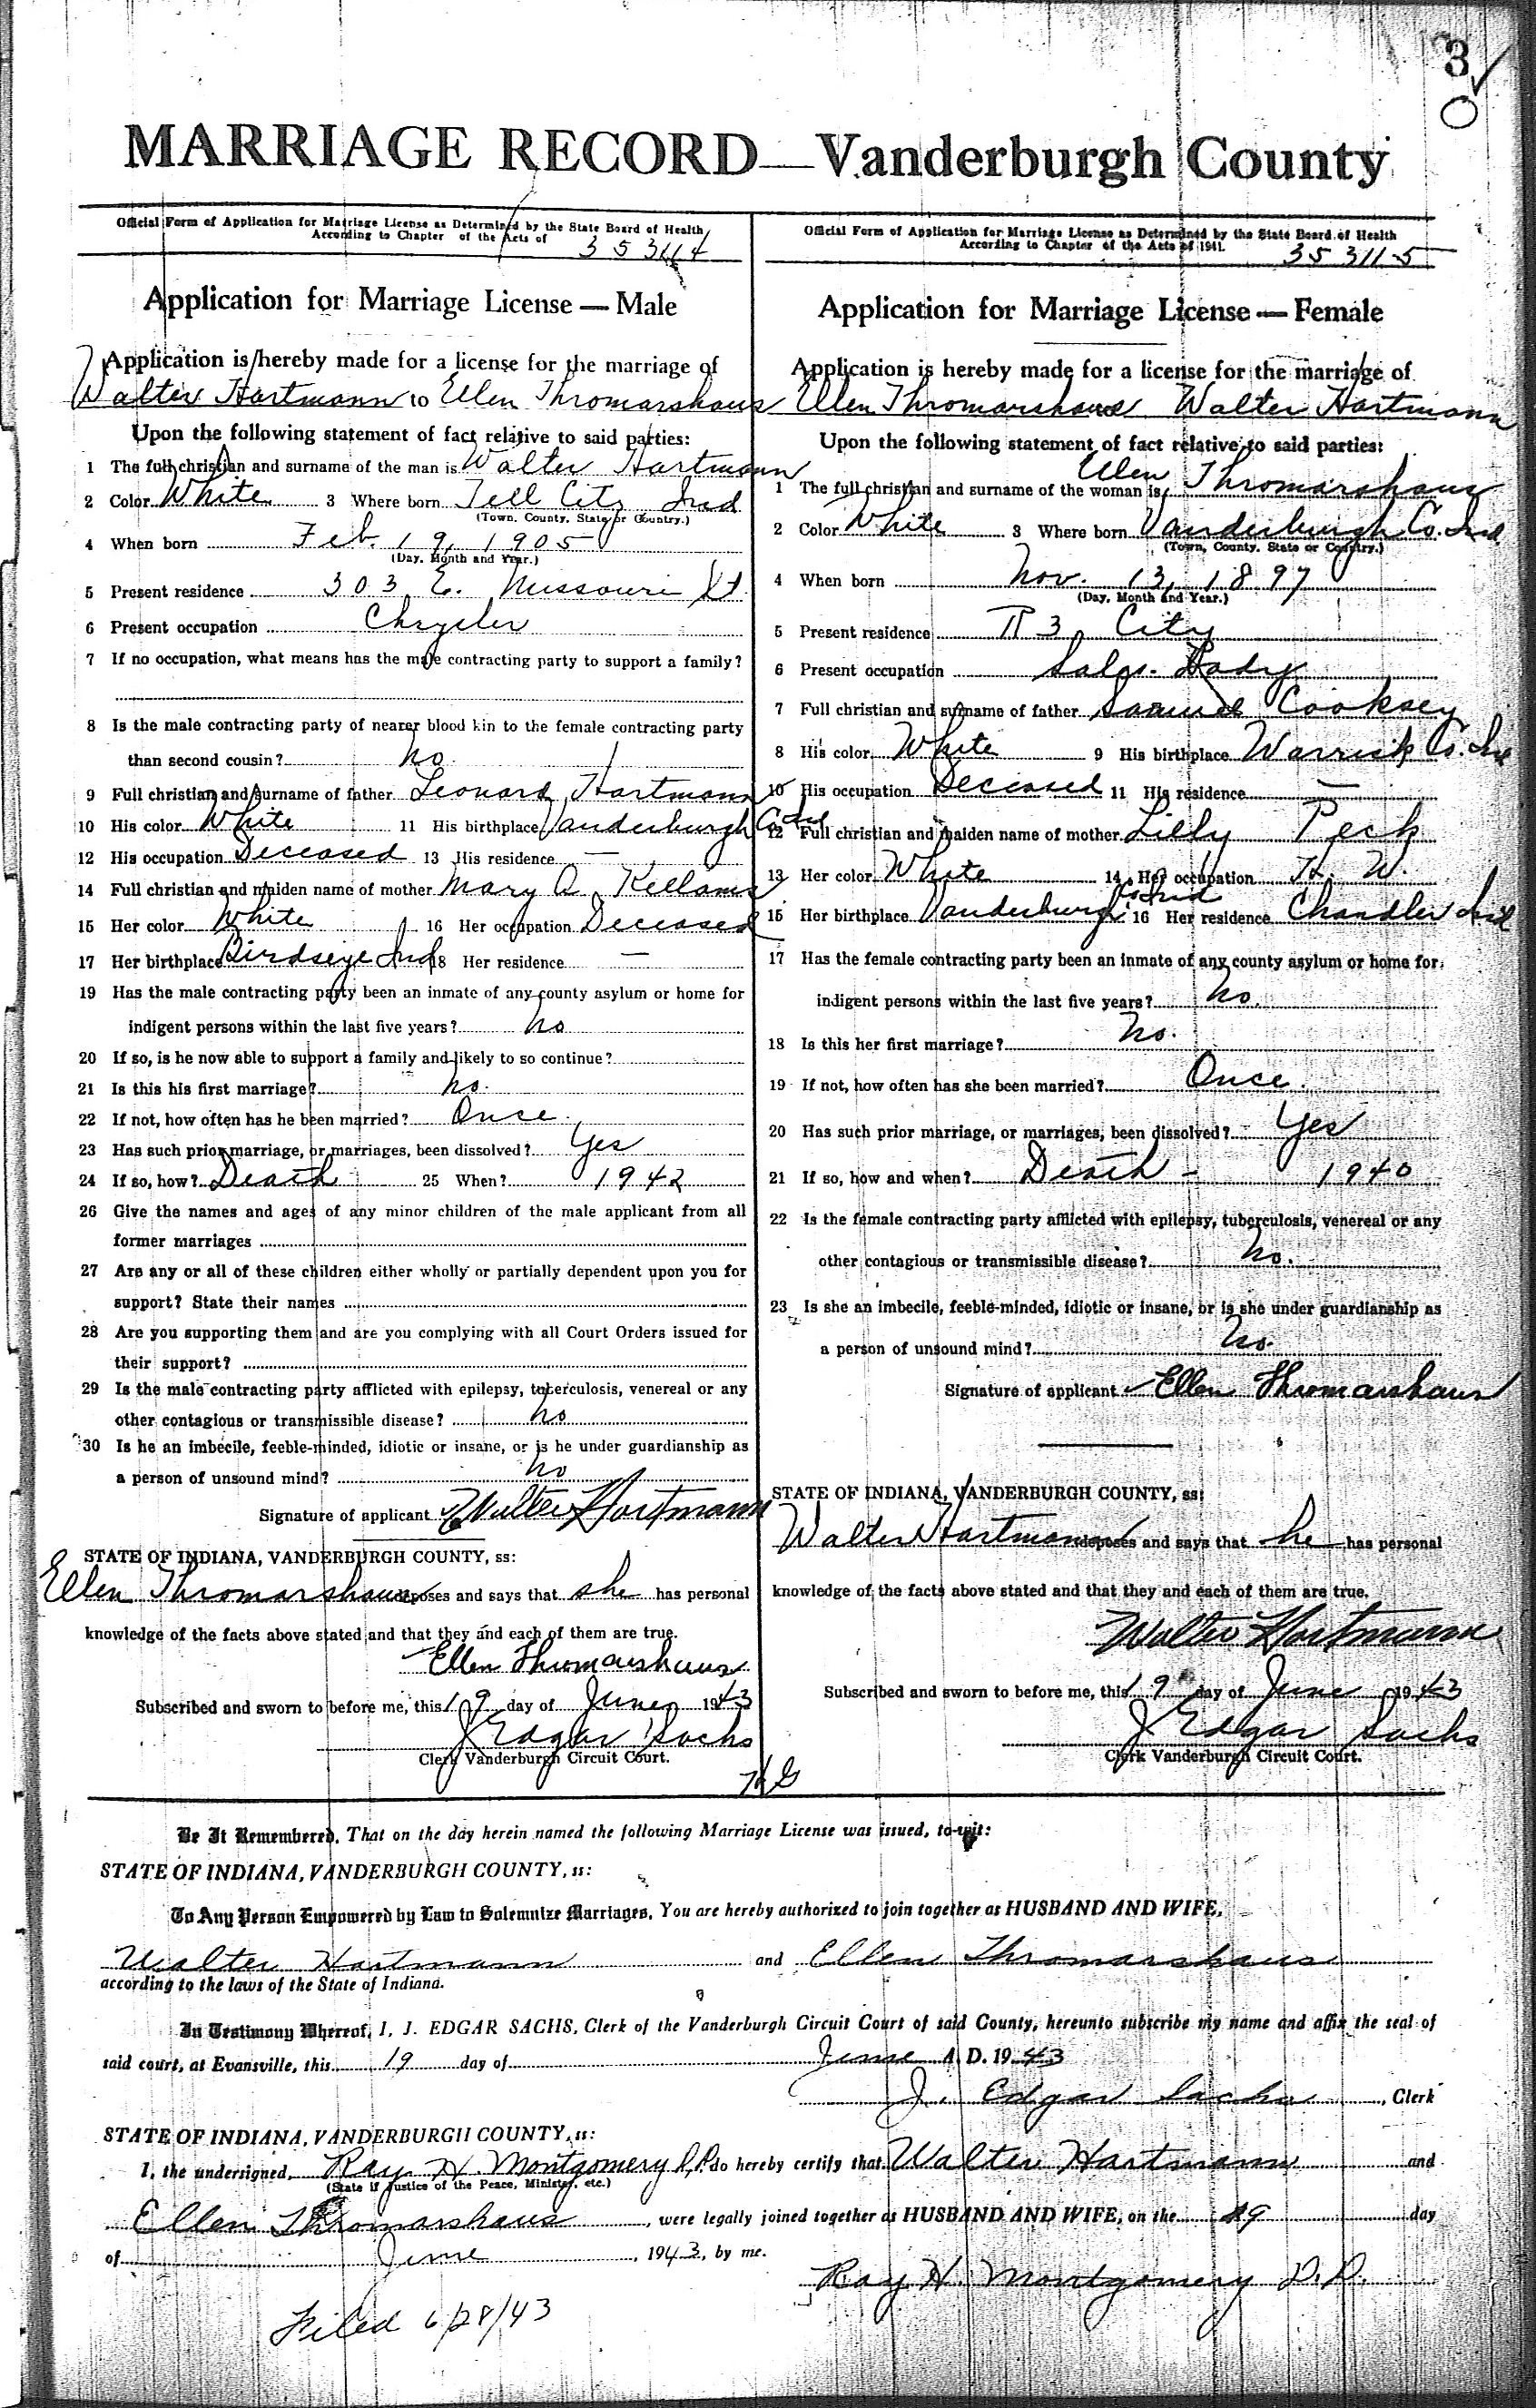 3
0
MARRIAGE RECORD—Vanderburgh County
Official Form of Application for Marriage License as Determined by the State Board of Health
According to Chapter of the Acts of
Application for Marriage License — Male
Application is hereby made for a license for the marriage of
Walter Hartmann to Ellen Thromarshaus
Upon the following statement of fact relative to said parties:
1 The full christian and surname of the man is Walter Hartmann
2 Color White 3 Where born Tell City Ind
(Town, County, State or Country.)
4 When born Feb. 19, 1905
(Day, Month and Year.)
5 Present residence 303 E. Missouri St.
6 Present occupation Chrysler
7 If no occupation, what means has the male contracting party to support a family?
8 Is the male contracting party of nearer blood kin to the female contracting party
than second cousin? no.
9 Full christian and surname of father Leonard Hartmann
10 His color White 11 His birthplace Vanderburgh Co Ind
12 His occupation Deceased 13 His residence —
14 Full christian and maiden name of mother Mary A. Kellams
15 Her color White 16 Her occupation Deceased
17 Her birthplace Birdseye Ind 18 Her residence —
19 Has the male contracting party been an inmate of any county asylum or home for
indigent persons within the last five years? no
20 If so, is he now able to support a family and likely to so continue?
21 Is this his first marriage? no.
22 If not, how often has he been married? Once.
23 Has such prior marriage, or marriages, been dissolved? Yes
24 If so, how? Death 25 When? 1942
26 Give the names and ages of any minor children of the male applicant from all
former marriages
27 Are any or all of these children either wholly or partially dependent upon you for
support? State their names
28 Are you supporting them and are you complying with all Court Orders issued for
their support?
29 Is the male contracting party afflicted with epilepsy, tuberculosis, venereal or any
other contagious or transmissible disease? no
30 Is he an imbecile, feeble-minded, idiotic or insane, or is he under guardianship as
a person of unsound mind? no
Signature of applicant Walter Hartmann
STATE OF INDIANA, VANDERBURGH COUNTY, ss:
Ellen Thromarshaus deposes and says that she has personal
knowledge of the facts above stated and that they and each of them are true.
Ellen Thromarshaus
Subscribed and sworn to before me, this 19 day of June 1943
J Edgar Sachs
Clerk Vanderburgh Circuit Court.
Official Form of Application for Marriage License as Determined by the State Board of Health
According to Chapter of the Acts of 1941.
Application for Marriage License — Female
Application is hereby made for a license for the marriage of
Ellen Thromarshaus Walter Hartmann
Upon the following statement of fact relative to said parties:
1 The full christian and surname of the woman is Ellen Thromarshaus
2 Color White 3 Where born Vanderburgh Co. Ind
(Town, County, State or Country.)
4 When born Nov. 13, 1897
(Day, Month and Year.)
5 Present residence R 3, City
6 Present occupation Sales. Lady
7 Full christian and surname of father Samuel Cooksey
8 His color White 9 His birthplace Warrick Co. Ind
10 His occupation Deceased 11 His residence —
12 Full christian and maiden name of mother Lilly Peck
13 Her color White 14 Her occupation H. W.
15 Her birthplace Vanderburgh Co Ind 16 Her residence Chandler Ind
17 Has the female contracting party been an inmate of any county asylum or home for
indigent persons within the last five years? no.
18 Is this her first marriage? no.
19 If not, how often has she been married? Once.
20 Has such prior marriage, or marriages, been dissolved? Yes
21 If so, how and when? Death - 1940
22 Is the female contracting party afflicted with epilepsy, tuberculosis, venereal or any
other contagious or transmissible disease? no.
23 Is she an imbecile, feeble-minded, idiotic or insane, or is she under guardianship as
a person of unsound mind? no.
Signature of applicant Ellen Thromarshaus
STATE OF INDIANA, VANDERBURGH COUNTY, ss:
Walter Hartmann deposes and says that he has personal
knowledge of the facts above stated and that they and each of them are true.
Walter Hartmann
Subscribed and sworn to before me, this 19 day of June 1943
J Edgar Sachs
Clerk Vanderburgh Circuit Court.
Be It Remembered, That on the day herein named the following Marriage License was issued, to-wit:
STATE OF INDIANA, VANDERBURGH COUNTY, ss:
To Any Person Empowered by Law to Solemnize Marriages, You are hereby authorized to join together as HUSBAND AND WIFE,
Walter Hartmann and Ellen Thromarshaus
according to the laws of the State of Indiana.
In Testimony Whereof, I, J. EDGAR SACHS, Clerk of the Vanderburgh Circuit Court of said County, hereunto subscribe my name and affix the seal of
said court, at Evansville, this 19 day of June A. D. 1943
J. Edgar Sachs, Clerk
STATE OF INDIANA, VANDERBURGH COUNTY, ss:
I, the undersigned, Ray H Montgomery D.D. do hereby certify that Walter Hartmann and
(State if Justice of the Peace, Minister, etc.)
Ellen Thromarshaus, were legally joined together as HUSBAND AND WIFE, on the 19 day
of June, 1943, by me.
Ray H. Montgomery D.D.
Filed 6/28/43